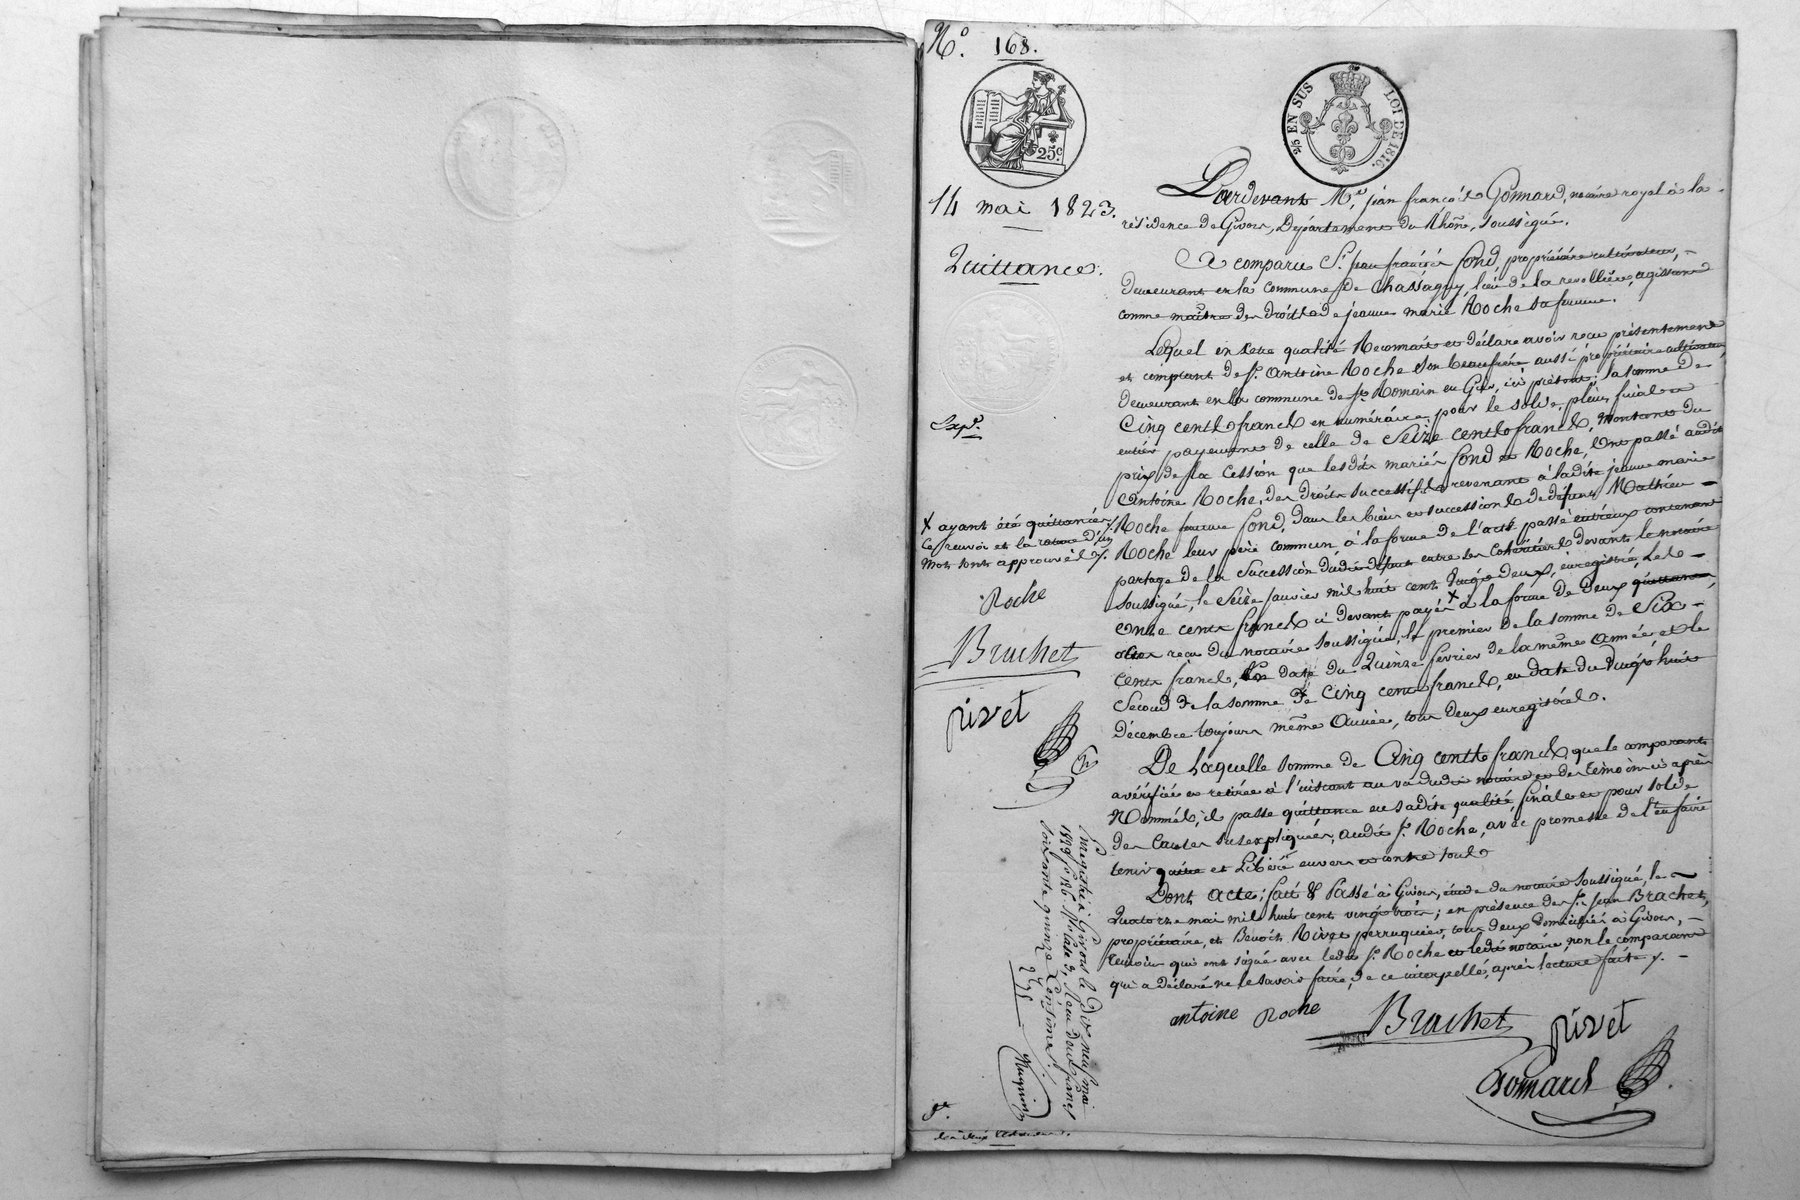 N.o 168.
25c.
25 EN SUS LOI DE 1816.
14 mai 1823.
Quittance.
Exp.
Pardevant M.e jean françois Gonnard, notaire royal à la
résidence de Givors, Département du Rhône, soussigné.
A comparu S.r jean françois fond, propriétaire cultivateur,
demeurant en la commune de Chassagny, lieu de la revollière, agissant
comme maître des droits de jeanne marie Roche sa femme.
Lequel en cette qualité Reconnait et déclare avoir reçu présentement
et comptant de S.r Antoine Roche son beaufrère aussi propriétaire cultivateur
demeurant en la commune de S.t Romain en Gier, ici présent, la somme de
Cinq cents francs en numéraire, pour le solde, plein, final et
entier payement de celle de Seize cents francs, montant du
prix de la Cession que lesdits mariés fond et Roche, ont passé audit
Antoine Roche, des droits successifs revenant à ladite jeanne marie
Roche femme fond, dans les biens et successions de défunt Mathieu
Roche leur père commun, à la forme de l'acte passé entr'eux contenant
partage de la Succession dudit défunt entre les Cohéritiers devant le notaire
soussigné, le Seize janvier mil huit cent vingt deux, enregistré, Les
onze cents francs ci devant payés x à la forme de deux quittances
reçu du notaire soussigné, le premier de la somme de Six
cents francs, en date du Quinze février de la même année, et le
Second de la somme de Cinq cents francs, en date du vingt huit
décembre toujours même année, tous deux enregistrés.
De Laquelle somme de Cinq cents francs, que le comparant
a vérifiée et retirée à l'instant au vu dudit notaire et des témoins ci après
Nommés, il passe quittance en sadite qualité, finale et pour solde
des causes susexpliquées, audit S.r Roche, avec promesse de l'en faire
tenir quitte et Libéré envers et contre tous
Dont acte; fait & Passé à Givors, étude du notaire soussigné, le
Quatorze mai mil huit cent vingt trois; en présence des S.rs Jean Brachet,
propriétaire, et Benoit Rivet perruquier, tous deux domiciliés à Givors,
témoins qui ont signé avec ledit S.r Roche et ledit notaire, non le comparant
qui a déclaré ne le savoir faire, de ce interpellé, après lecture faite
antoine Roche Brachet rivet
Gonnard
x ayant été quittancés
Ce renvoi et la rature d'un
mot sont approuvés
Roche
Brachet
rivet
Enregistré à Givors le Dix neuf mai
1823 f.o 136 R.o Case 7, Reçu deux francs
soixante quinze Centimes.
2.75